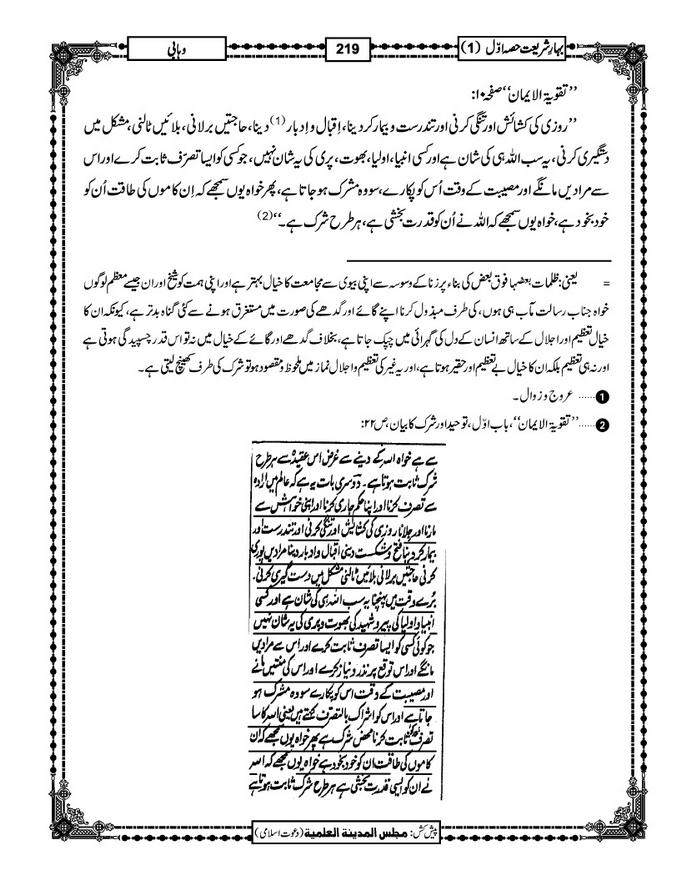 بہارِ شریعت حصہ اوّل (1)
219
وہابی
’’تقویۃ الایمان‘‘ صفحہ ۱۰:
’’روزی کی کشائش اور تنگی کرنی اور تندرست و بیمار کردینا، اِقبال و اِدبار (1) دینا، حاجتیں برلانی، بلائیں ٹالنی، مشکل میں
دستگیری کرنی، یہ سب اللہ ہی کی شان ہے اور کسی انبیا، اولیا، بھوت، پری کی یہ شان نہیں، جو کسی کو ایسا تصرّف ثابت کرے اور اس
سے مرادیں مانگے اور مصیبت کے وقت اُس کو پکارے، سو وہ مشرک ہوجاتا ہے، پھر خواہ یوں سمجھے کہ اِن کاموں کی طاقت اُن کو
خود بخود ہے، خواہ یوں سمجھے کہ اللہ نے اُن کو قدرت بخشی ہے، ہر طرح شرک ہے۔‘‘ (2)
= یعنی: ظلمات بعضہا فوق بعض کی بناء پر زنا کے وسوسہ سے اپنی بیوی سے مجامعت کا خیال بہتر ہے اور اپنی ہمت کو شیخ اور ان جیسے معظم لوگوں
خواہ جناب رسالت مآب ہی ہوں، کی طرف مبذول کرنا اپنے گائے اور گدھے کی صورت میں مستغرق ہونے سے کئی گناہ بدتر ہے، کیونکہ ان کا
خیال تعظیم اور اجلال کے ساتھ انسان کے دل کی گہرائی میں چپک جاتا ہے، بخلاف گدھے اور گائے کے خیال میں نہ تو اس قدر چسپیدگی ہوتی ہے
اور نہ ہی تعظیم بلکہ ان کا خیال بے تعظیم اور حقیر ہوتا ہے، اور یہ غیر کی تعظیم و اجلال نماز میں ملحوظ و مقصود ہو تو شرک کی طرف کھینچ لیتی ہے۔
1 ...... عروج و زوال۔
2 ...... ’’تقویۃ الایمان‘‘، باب اوّل، توحید اور شرک کا بیان، ص۲۲:
سے ہے خواہ اللہ کے دینے سے غرض اس عقیدہ سے ہر طرح
شرک ثابت ہوتا ہے۔ دوسری بات یہ ہے کہ عالم میں ارادہ
سے تصرف کرنا اور اپنا حکم جاری کرنا اور اپنی خواہش سے
مارنا اور جلانا روزی کی کشائش اور تنگی کرنی اور تندرست اور
بیمار کر دینا فتح و شکست دینی اقبال و ادبار دینا مرادیں پوری
کرنی حاجتیں برلانی بلائیں ٹالنی مشکل میں دست گیری کرنی
بُرے وقت میں پہنچنا یہ سب اللہ ہی کی شان ہے اور کسی
انبیا و اولیا کی پیر و شہید کی بھوت و پری کی یہ شان نہیں
جو کوئی کسی کو ایسا تصرف ثابت کرے اور اس سے مرادیں
مانگے اور اس توقع پر نذر و نیاز کرے اور اس کی منتیں مانے
اور مصیبت کے وقت اس کو پکارے سو وہ مشرک ہو
جاتا ہے اور اس کو اشراک بالتصرف کہتے ہیں یعنی اللہ کا سا
تصرف ثابت کرنا محض شرک ہے پھر خواہ یوں سمجھے کہ ان
کاموں کی طاقت ان کو خود بخود ہے خواہ یوں سمجھے کہ اللہ
نے ان کو ایسی قدرت بخشی ہے ہر طرح شرک ثابت ہوتا ہے
پیش کش: مجلس المدینۃ العلمیۃ (دعوت اسلامی)